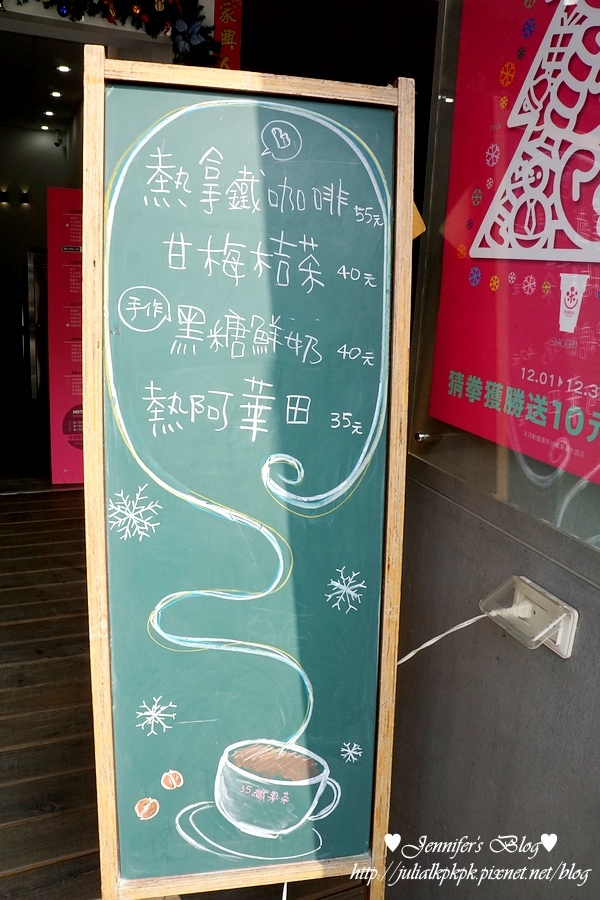 家興
熱拿鐵咖啡 55元
甘梅桔茶 40元
手作
黑糖鮮奶 40元
熱阿華田 35元
12.01 12.3
猜拳獲勝送10元
♥ Jennifer's Blog ♥
http://julialkpkpk.pixnet.net/blog